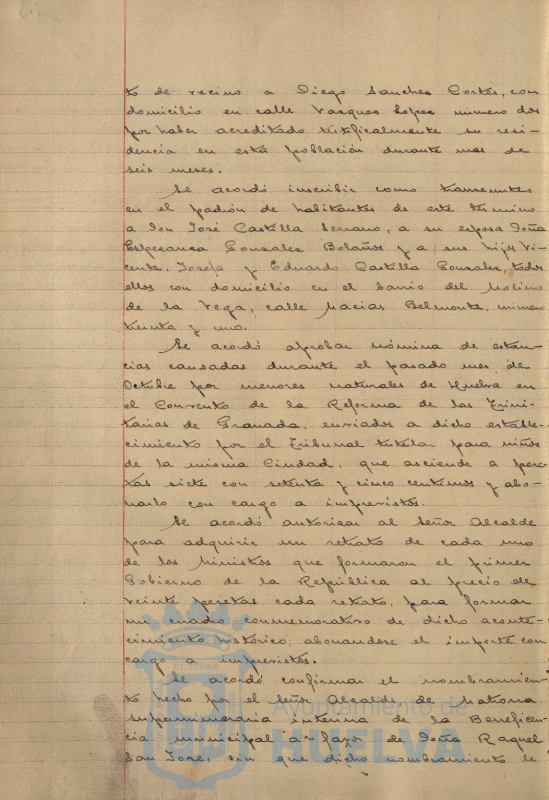 to de vecino a Diego Sanchez Cortés, con
domicilio en calle Vazquez Lopez número dos
por haber acreditado testificalmente su resi-
dencia en esta población durante mas de
seis meses.
Se acordó inscribir como transeuntes
en el padrón de habitantes de este término
a Don José Castilla Serrano, a su esposa Doña
Esperanza Gonzalez Bolaños y a sus hijos Vi-
cente, Josefa y Eduardo Castilla Gonzalez, todos
ellos con domicilio en el barrio del Molino
de la Vega, calle Macias Belmonte, número
treinta y uno.
Se acordó aprobar nómina de estan-
cias causadas durante el pasado mes de
Octubre por menores naturales de Huelva en
el Convento de la Reforma de las Trini-
tarias de Granada, enviados a dicho estable-
cimiento por el Tribunal tutelar para niños
de la misma Ciudad, que asciende a pese-
tas siete con setenta y cinco centimos y abo-
narlo con cargo a imprevistos.
Se acordó autorizar al Señor Alcalde
para adquirir un retrato de cada uno
de los Ministros que formaron el primer
Gobierno de la República al precio de
veinte pesetas cada retrato, para formar
un cuadro conmemorativo de dicho aconte-
cimiento histórico, abonandose el importe con
cargo a imprevistos.
Se acordó confirmar el nombramien-
to hecho por el Señor Alcalde de Matrona
supernumeraria interina de la Beneficen-
cia municipal a favor de Doña Raquel
San José, sin que dicho nombramiento le
Ayuntamiento de
HUELVA